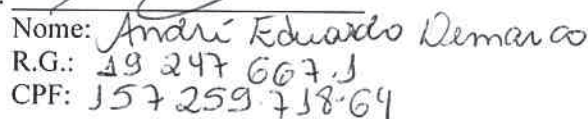 Nome: André Eduardo Demarco
R.G.: 19 247 667.1
CPF: 157 259.718-64